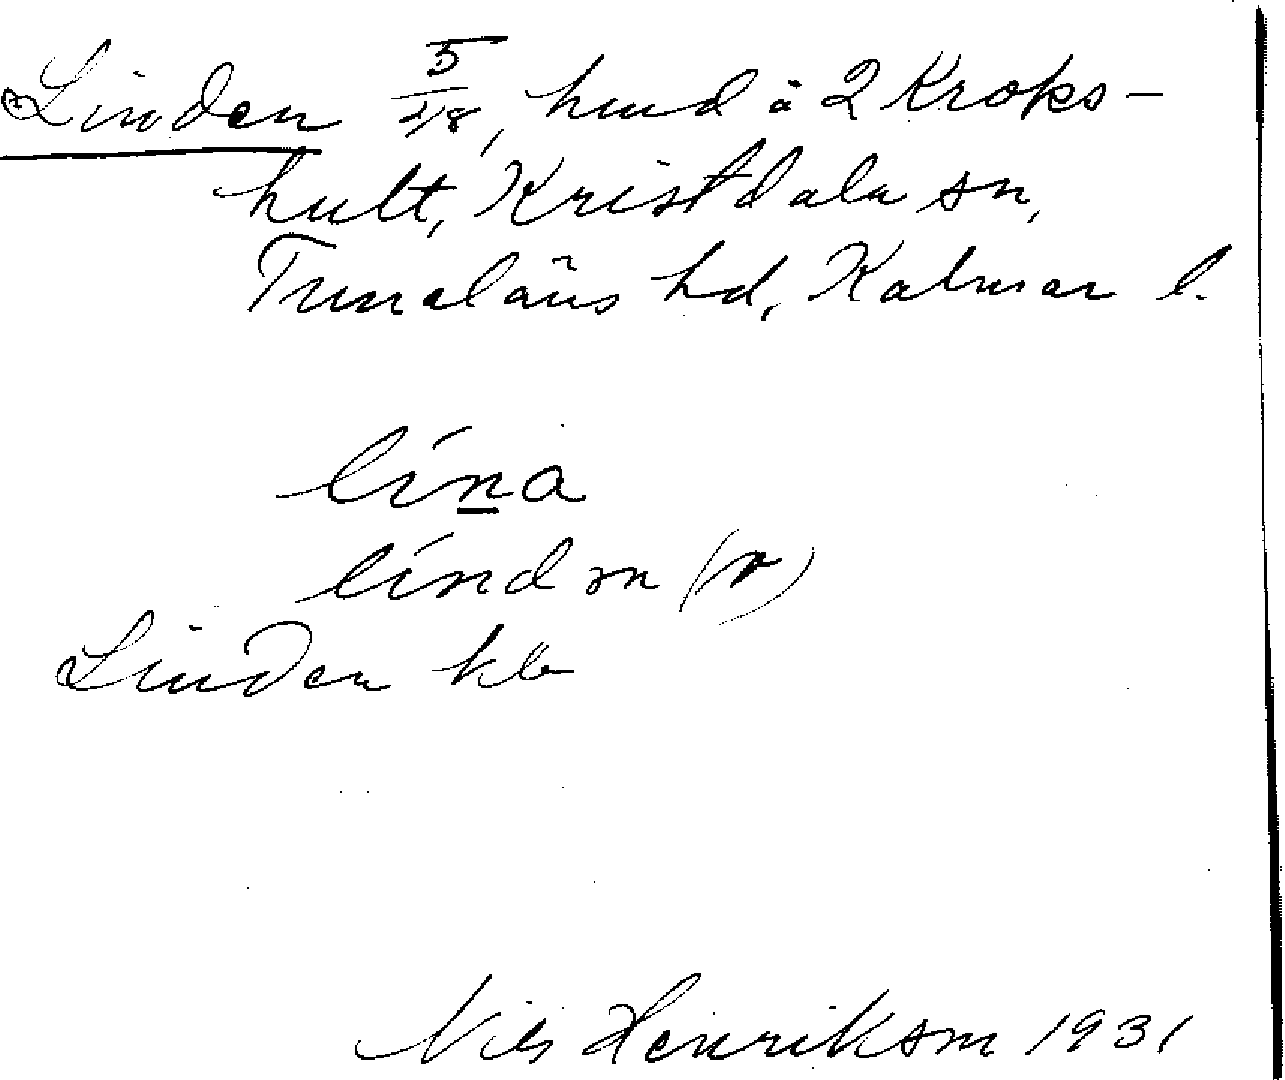 Linden 5/48, hmd å 2 Kroks-
hult, Kristdala sn,
Tunaläns hd, Kalmar l.
lína
líndn (r)
Linden kb
Nils Henriksson 1931